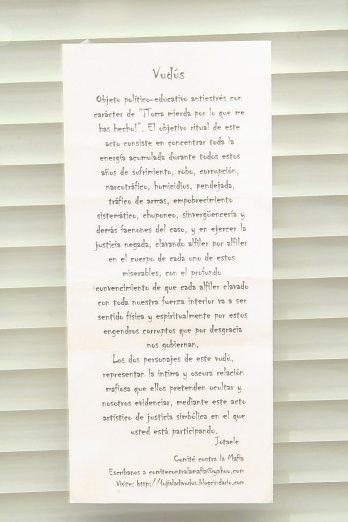 Vudús
Objeto político-educativo antiestrés con
carácter de "¡Toma mierda por lo que me
has hecho!". El objetivo ritual de este
acto consiste en concentrar toda la
energía acumulada durante todos estos
años de sufrimiento, robo, corrupción,
narcotráfico, homicidios, pendejada,
tráfico de armas, empobrecimiento
sistemático, chuponeo, sinvergüencería y
demás faenones del caso, y en ejercer la
justicia negada, clavando alfiler por alfiler
en el cuerpo de cada uno de estos
miserables, con el profundo
convencimiento de que cada alfiler clavado
con toda nuestra fuerza interior va a ser
sentido física y espiritualmente por estos
engendros corruptos que por desgracia
nos gobiernan.
Los dos personajes de este vudú,
representan la intima y oscura relación
mafiosa que ellos pretenden ocultar y
nosotros evidenciar, mediante este acto
artístico de justicia simbólica en el que
usted está participando.
Comité contra la Mafia
Escríbanos a comitecontralamafia@yahoo.com
Visite: